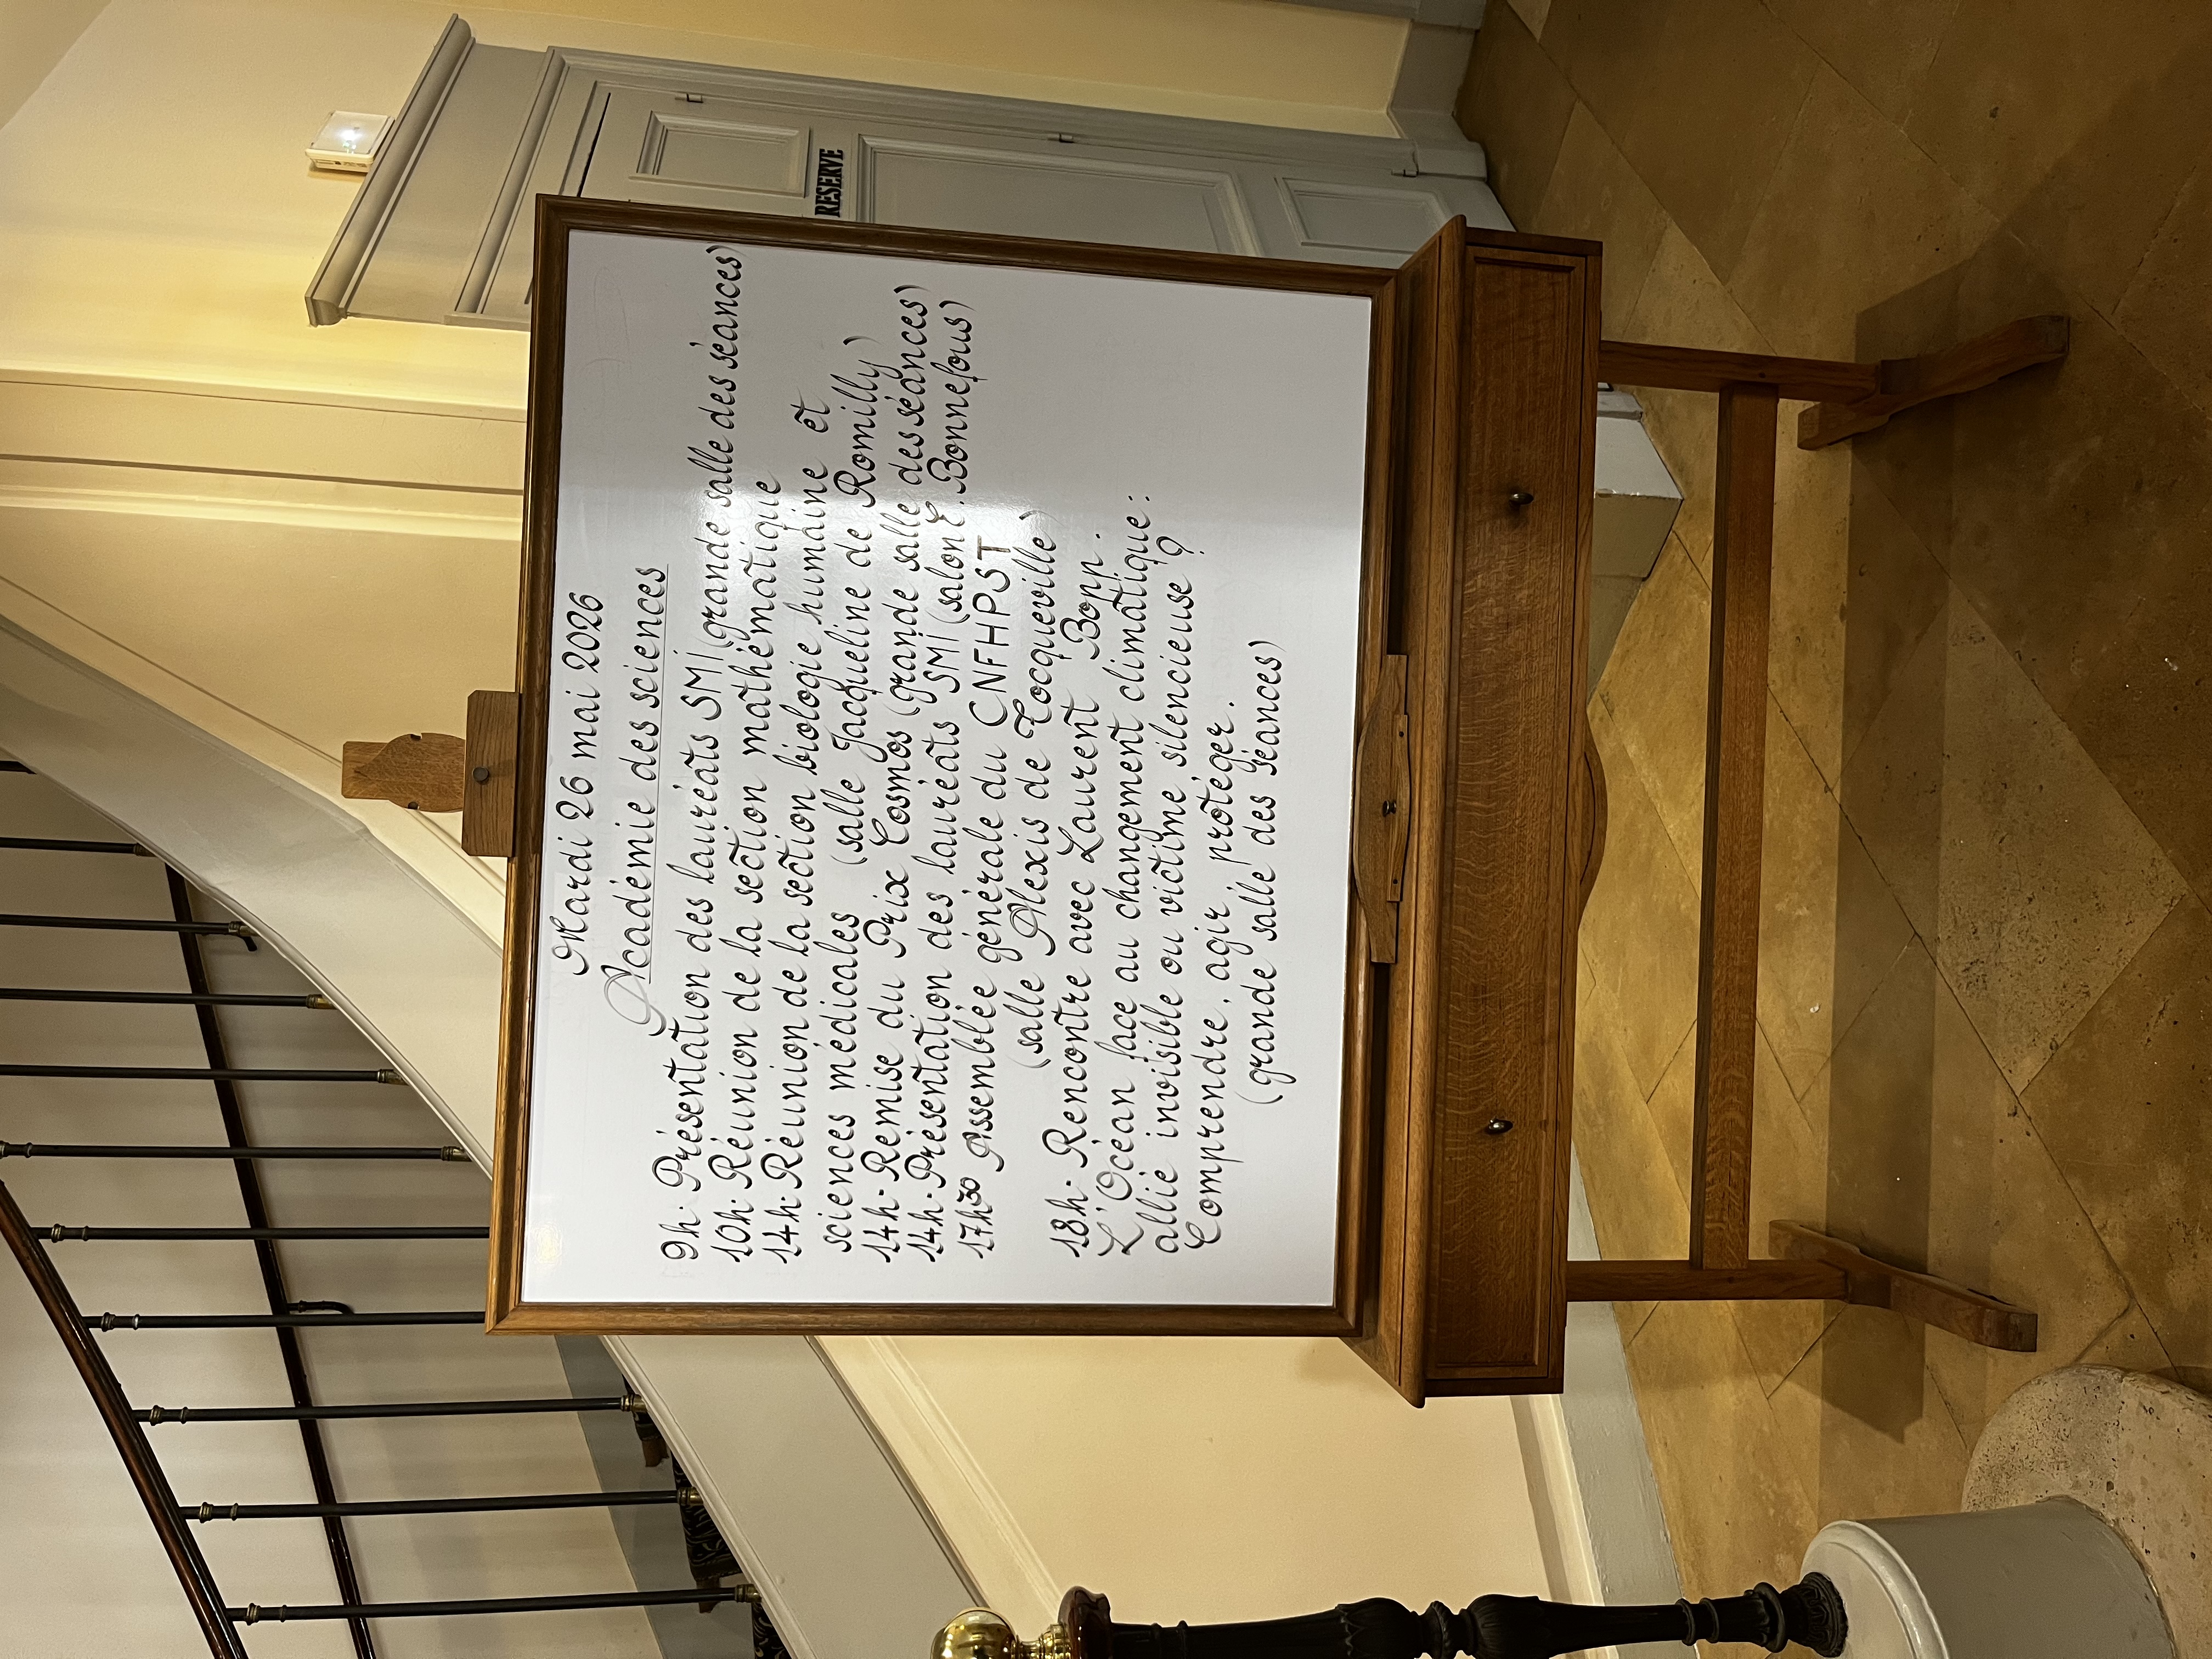 Mardi 26 mai 2026
Académie des sciences
9h. Présentation des lauréats SMI (grande salle des séances)
10h. Réunion de la section mathématique
14h. Réunion de la section biologie humaine et
sciences médicales (salle Jacqueline de Romilly)
14h. Remise du Prix Cosmos (grande salle des séances)
14h. Présentation des lauréats SMI (salon E. Bonnefous)
17h30 Assemblée générale du CNFHPST
(salle Alexis de Tocqueville)
18h. Rencontre avec Laurent Bopp.
L'Océan face au changement climatique :
allié invisible ou victime silencieuse ?
Comprendre, agir, protéger.
(grande salle des séances)
RESERVE